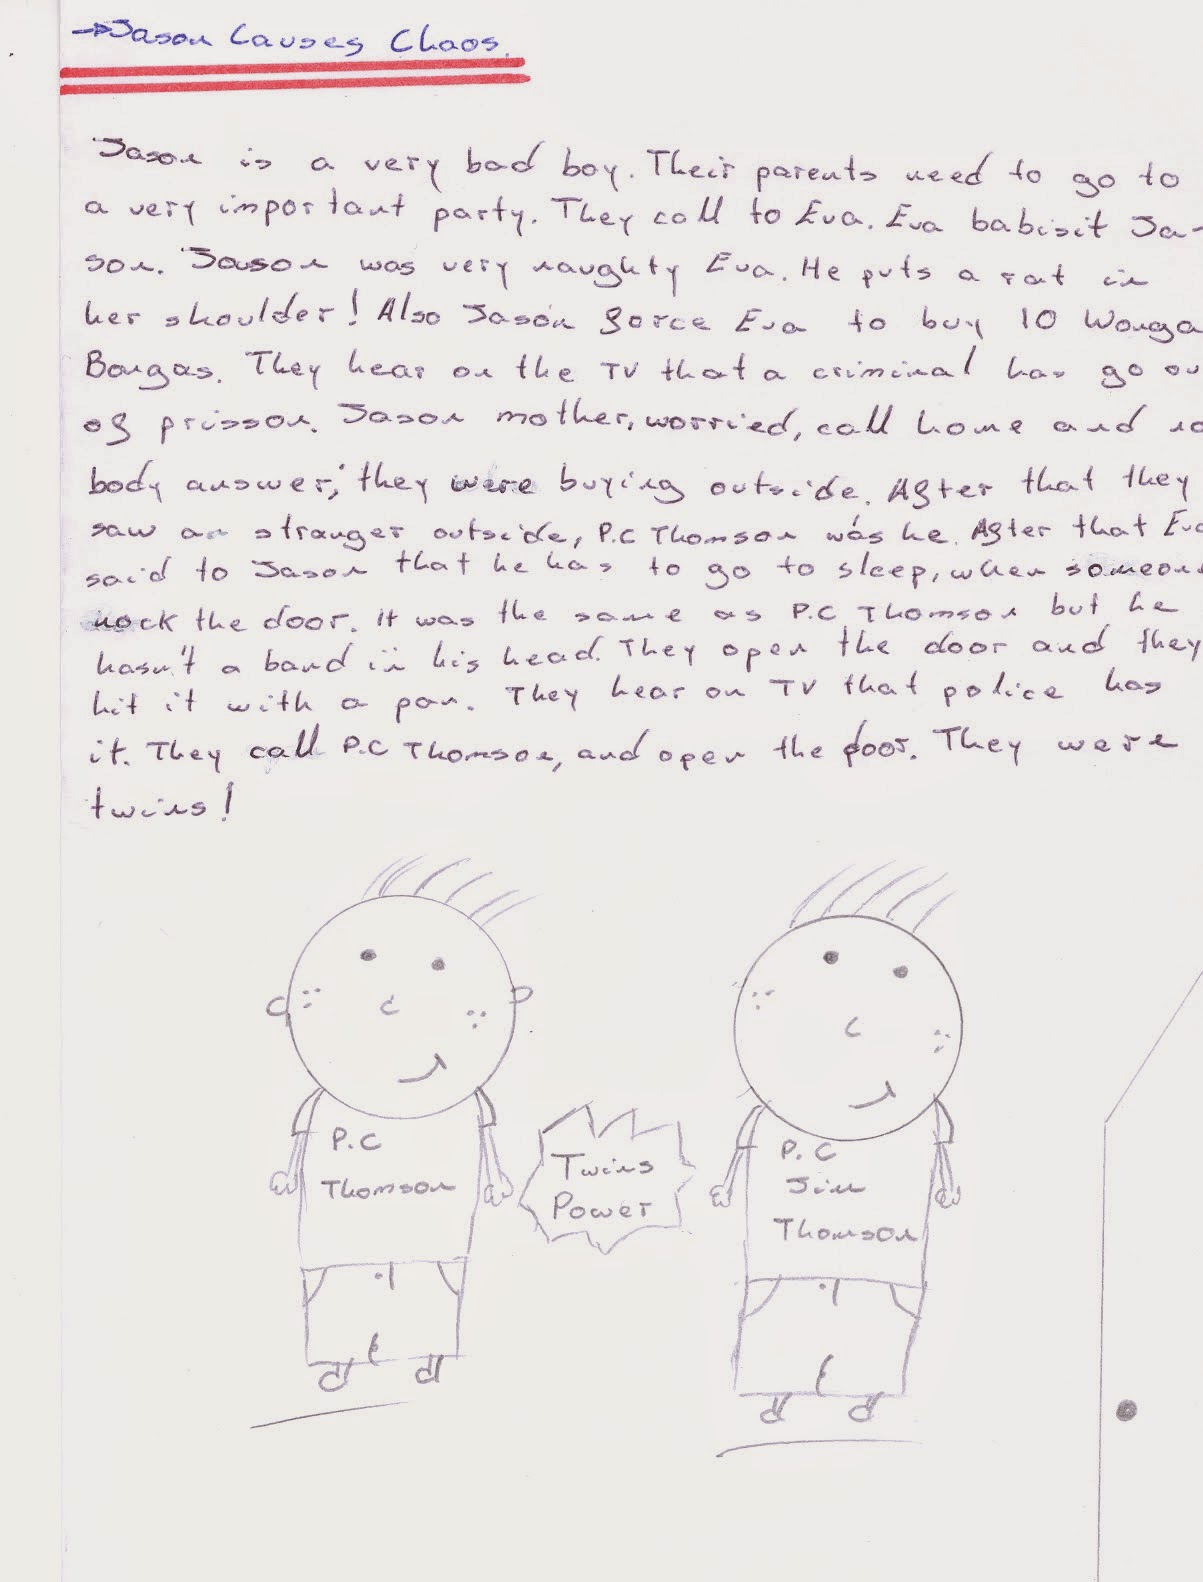 →Jason Causes Chaos.
Jason is a very bad boy. Their parents need to go to
a very important party. They call to Eva. Eva babisit Ja-
son. Jason was very naughty Eva. He puts a rat in
her shoulder! Also Jason force Eva to buy 10 Wonga
Bongas. They hear on the TV that a criminal has go ou
of prisson. Jason mother, worried, call home and no
body answer, they were buying outside. After that they
saw an stranger outside, P.C Thomson was he. After that Eva
said to Jason that he has to go to sleep, when someone
nock the door. It was the same as P.C Thomson but he
hasn't a band in his head. They open the door and they
hit it with a pan. They hear on TV that police has
it. They call P.C Thomson, and open the door. They were
twins!
P.C
Thomson
Twins
Power
P.C
Jim
Thomson